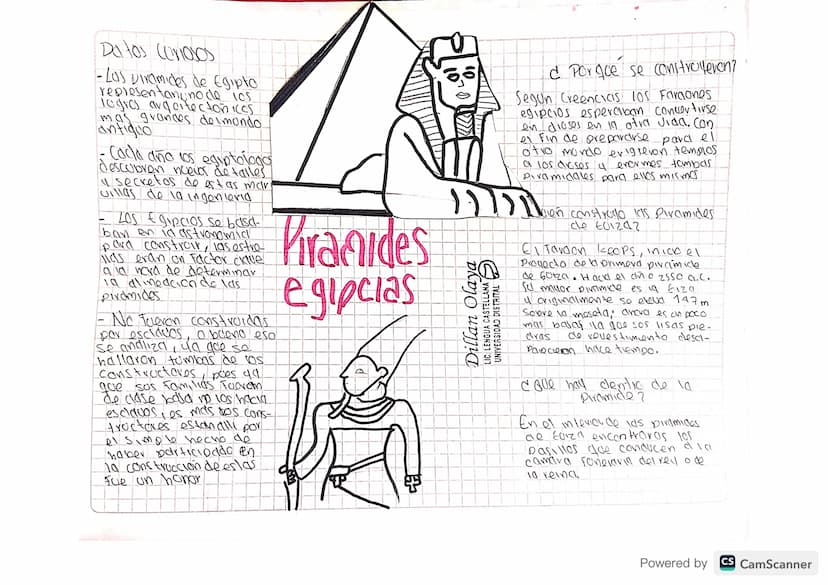 Datos Curiosos
- Las pirámides de Egipto
representan uno de los
logros arquitectónicos
mas grandes del mundo
antiguo
- Cada año los egiptólogos
descubren nuevos detalles
y secretos de estas mara
villas de la ingeniería
- Los Egipcios se basa-
ban en la astronomía
para construir, las estre-
llas eran un factor clave
a la hora de determinar
la alineación de las
pirámides
- No fueron construidas
por esclavos, o bueno eso
se analiza, ya que se
hallaron tumbas de los
constructores, pues ya
que sus familias fueran
de clase baja no los hacía
esclavos, es mas sus cons-
tructores están allí por
el simple hecho de
haber participado en
la construcción de estas
fue un honor
Piramides
egipcias
Dillan Olaya
LIC. LENGUA CASTELLANA
UNIVERSIDAD DISTRITAL
¿ Porqué se construlleron?
Según creencias los Faraones
egipcios esperaban convertirse
en dioses en la otra vida. Con
el fin de prepararse para el
otro mundo erigieron templos
a los dioses y enormes tumbas
piramidales para ellos mismos
construyo las Piramides
de Guiza?
El Faraon Keops, inicio el
Proyecto de la primera pirámide
de Guiza. Hacia el año 2550 a.c.
Su mayor piramide es la Giza
y originalmente se elevo 147 m
sobre la meseta, ahora es un poco
mas baja, ya que sus lisas pie-
dras de revestimento desa-
parecieron hace tiempo.
¿Que hay dentro de la
Piramide?
En el interior de las pirámides
de Guiza encontraras los
pasillos que conducen a la
camara funeraria del rey o de
la reina
Powered by CS CamScanner